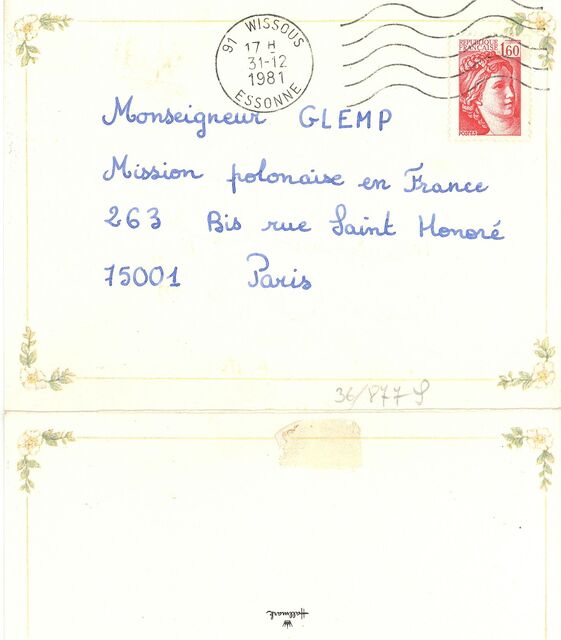 91 WISSOUS
17 H
31-12
1981
ESSONNE
REPUBLIQUE
FRANÇAISE
1,60
Monseigneur GLEMP
Mission polonaise en France
263 Bis rue Saint Honoré
75001 Paris
36/877 S
Hallmark